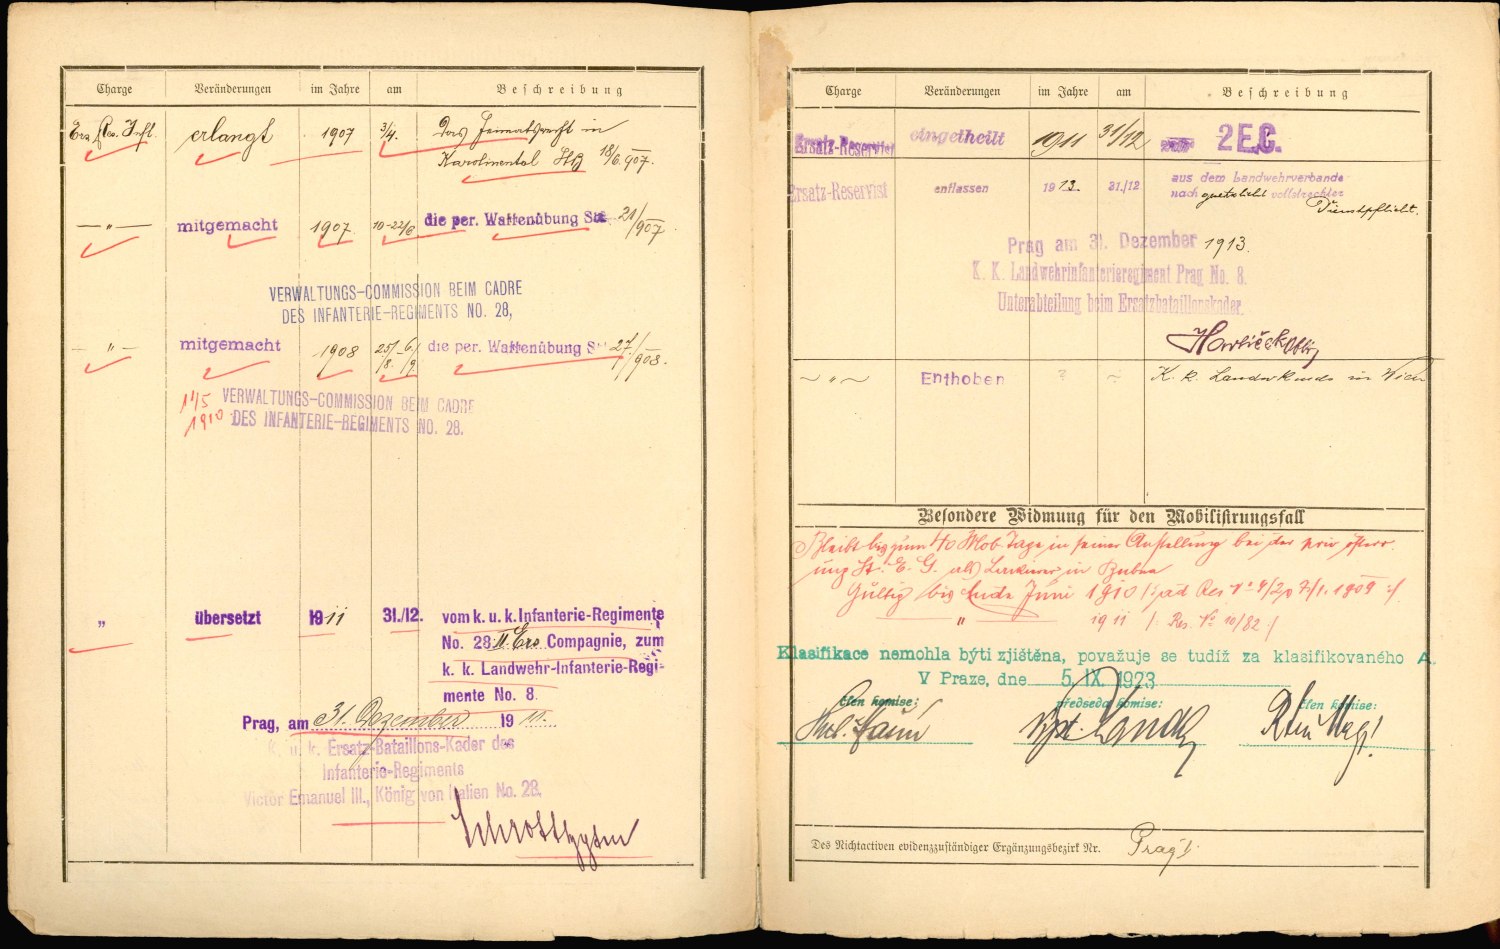 Charge Veränderungen im Jahre am Beschreibung
Ers. Res. Inft. erlangt 1907 3/4. Das Heimatsrecht in
Karolinental StB 18/6 907.
— " — mitgemacht 1907 10-22/6 die per. Waffenübung 21/907
VERWALTUNGS-COMMISSION BEIM CADRE
DES INFANTERIE-REGIMENTS NO. 28,
— " — mitgemacht 1908 25/8.-6/9. die per. Waffenübung 27/908.
11/5 1910
VERWALTUNGS-COMMISSION BEIM CADRE
DES INFANTERIE-REGIMENTS NO. 28.
" übersetzt 1911 31./12. vom k. u. k. Infanterie-Regimente
No. 28 11 Ers Compagnie, zum
k. k. Landwehr-Infanterie-Regi-
mente No. 8.
Prag, am 31. Dezember 1911.
K. u. k. Ersatz-Bataillons-Kader des
Infanterie-Regiments
Victor Emanuel III., König von Italien No. 28.
Charge Veränderungen im Jahre am Beschreibung
Ersatz-Reservist eingetheilt 1911 31/12 2 E.C.
Ersatz-Reservist entlassen 1913. 31./12 aus dem Landwehrverbande
nach gesetzlich vollstreckter
Dienstpflicht.
Prag am 31. Dezember 1913.
K. K. Landwehrinfanterieregiment Prag No. 8.
Unterabteilung beim Ersatzbataillonskader.
~ " ~ Enthoben ? ~ K. k. Landw Kmdo in Wien
Besondere Widmung für den Mobilisirungsfall
Bleibt bis zum 40 Mob Tage in seiner Anstellung bei der priv österr.
ung St. E. G. als in Bubna
Gültig bis Ende Juni 1910 /: ad Res No 4/20 7/1. 1909 :/
" 1911 /: Res. No 10/82 :/
Klasifikace nemohla býti zjištěna, považuje se tudíž za klasifikovaného A.
V Praze, dne 5. IX. 1923
člen komise: předseda komise: člen komise:
Des Nichtactiven evidenzzuständiger Ergänzungsbezirk Nr. Prag I.